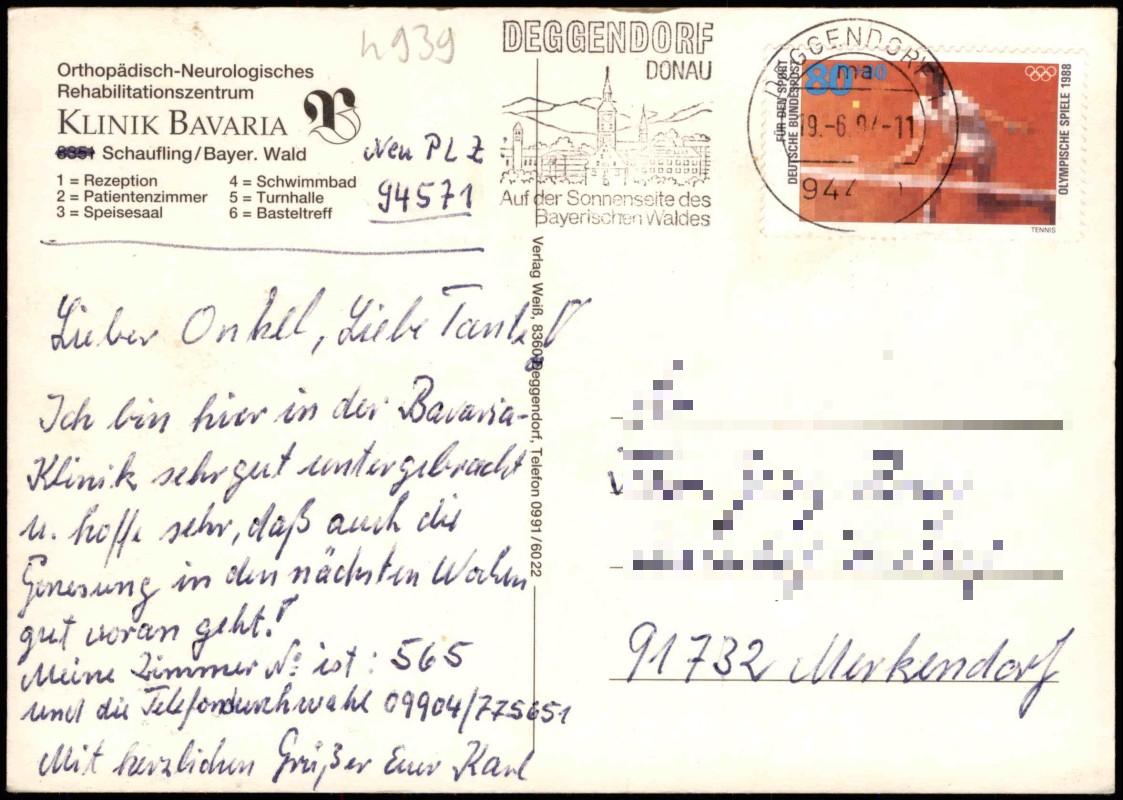 4939
Orthopädisch-Neurologisches
Rehabilitationszentrum
KLINIK BAVARIA
8351 Schaufling/Bayer. Wald
1 = Rezeption
2 = Patientenzimmer
3 = Speisesaal
4 = Schwimmbad
5 = Turnhalle
6 = Basteltreff
Neu PLZ
94571
DEGGENDORF
DONAU
Auf der Sonnenseite des
Bayerischen Waldes
DEGGENDORF
ma
80
FÜR DEN SPORT
DEUTSCHE BUNDESPOST
OLYMPISCHE SPIELE 1988
TENNIS
Verlag Weiß, 8360 Deggendorf, Telefon 0991/6022
Lieber Onkel, Liebe Tante!
Ich bin hier in der Bavaria-
Klinik sehr gut untergebracht
u. hoffe sehr, daß auch die
Genesung in den nächsten Wochen
gut voran geht!
Meine Zimmer No ist: 565
und die Telefondurchwahl 09904/775651
Mit herzlichen Grüßen Euer Karl
91732 Merkendorf